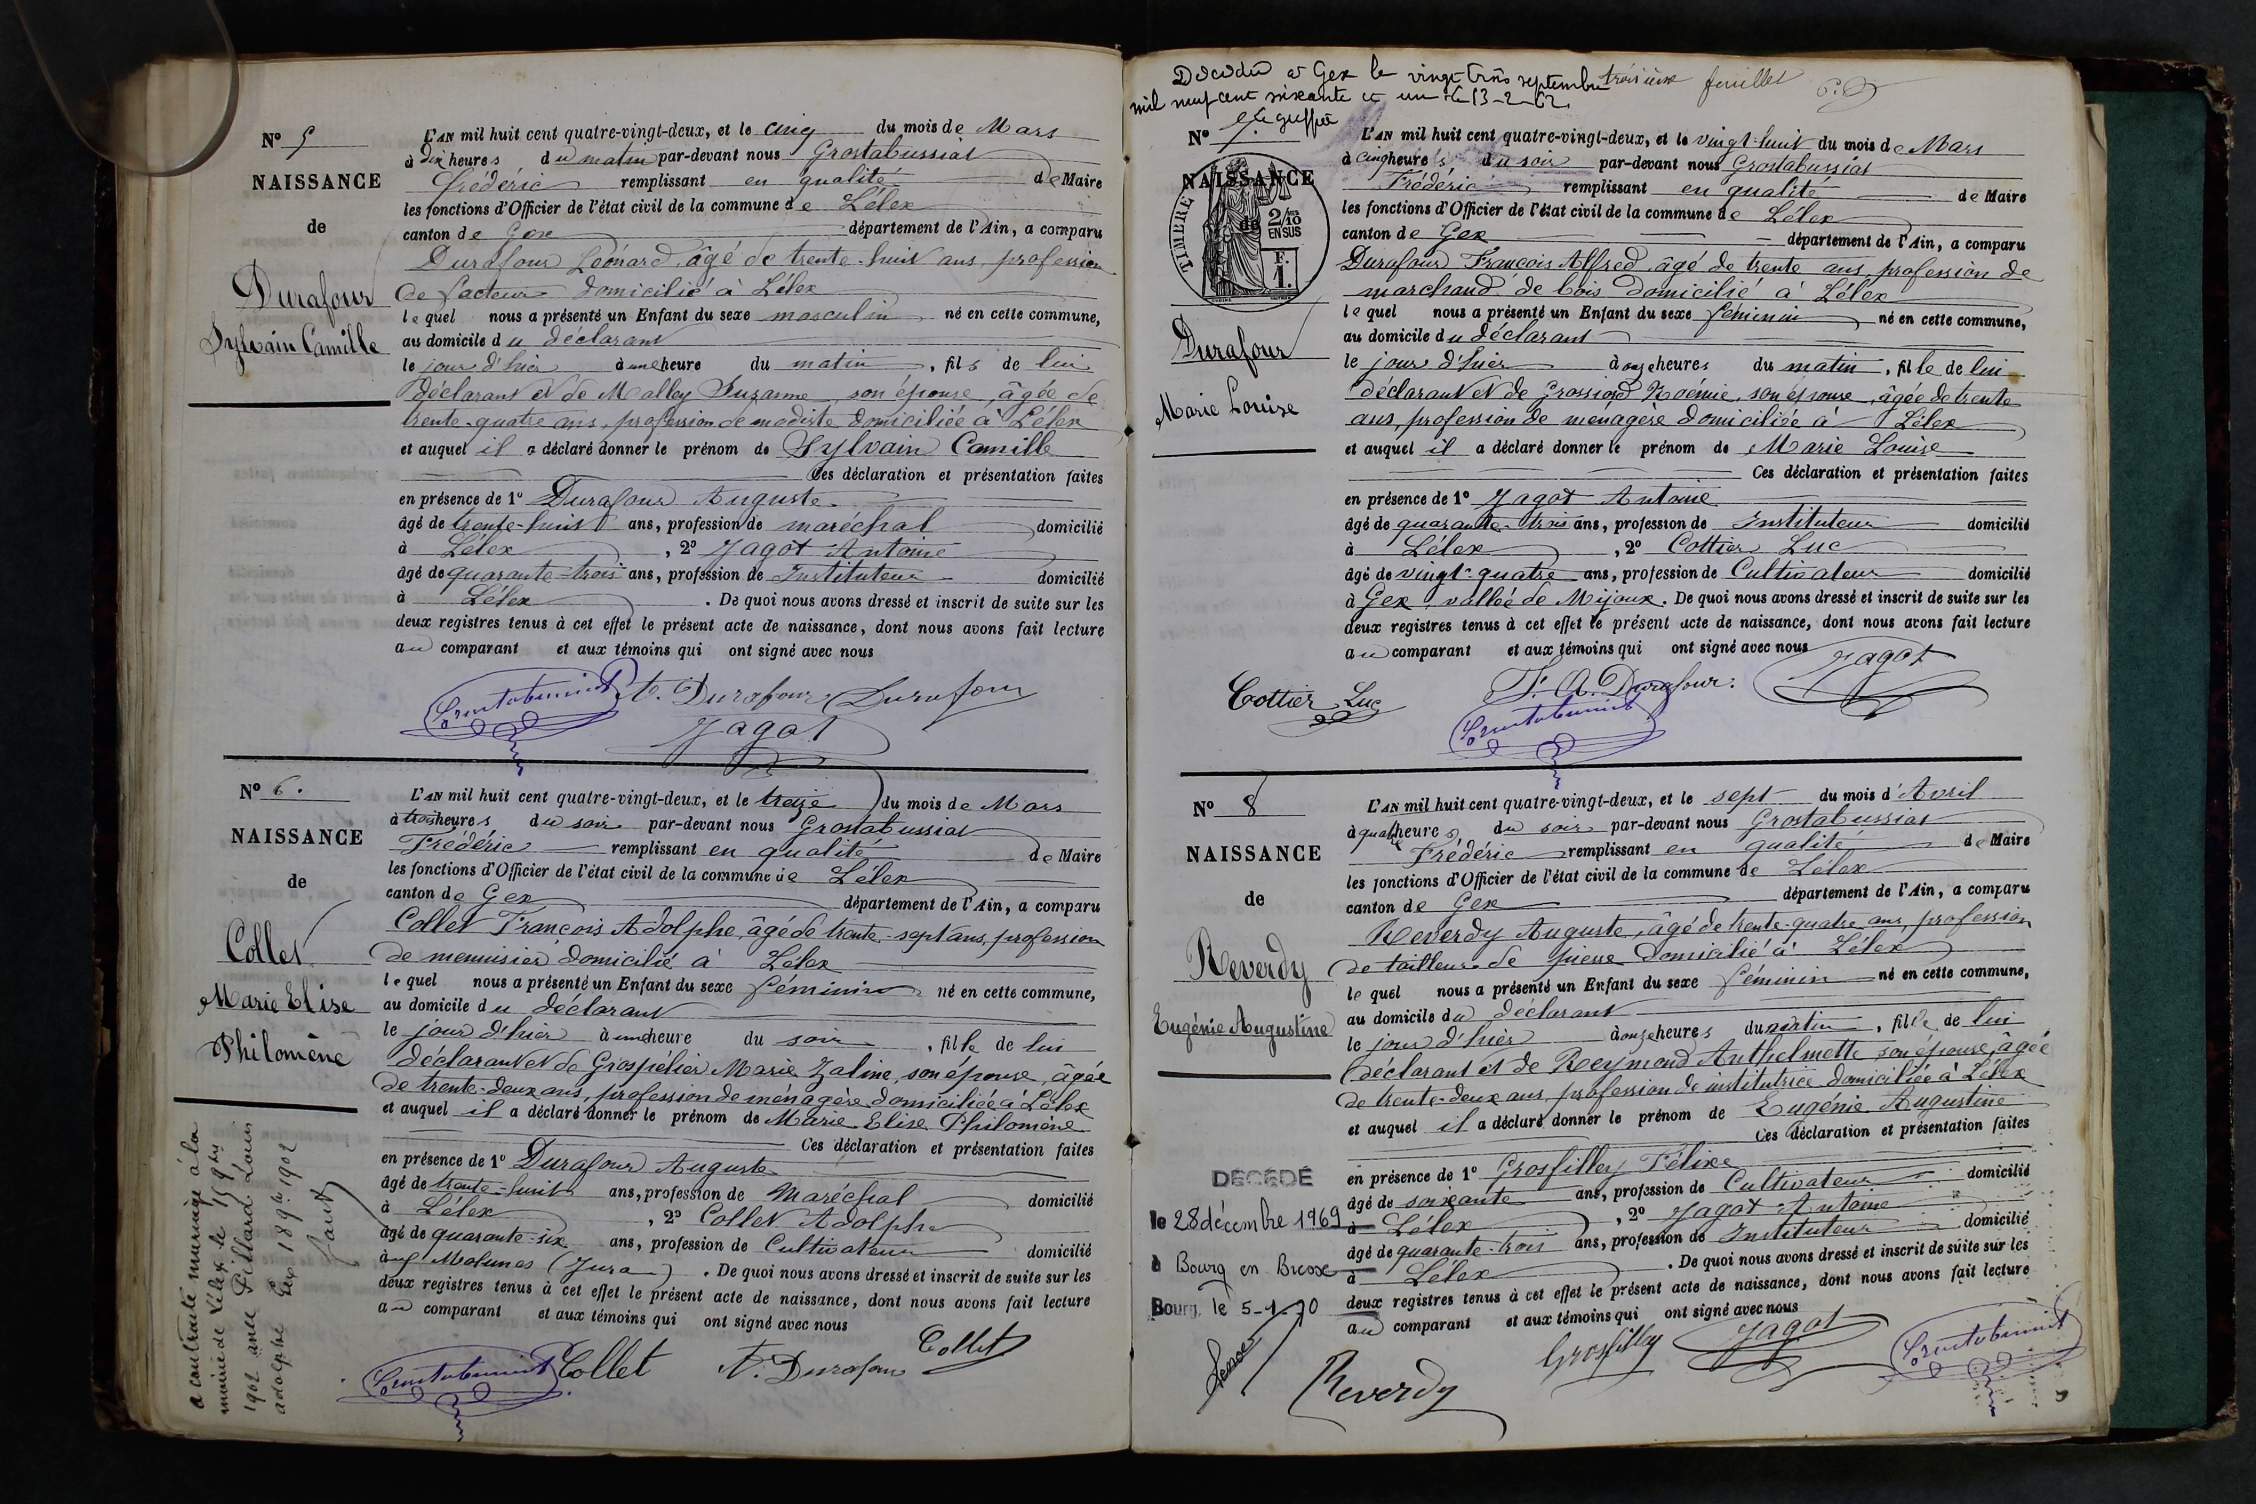 Nº 5
NAISSANCE
de
Durafour
Sylvain Camille
L'AN mil huit cent quatre-vingt-deux, et le cinq du mois de Mars
à dix heures du matin par-devant nous Grostabussiat
Frédéric remplissant en qualité de Maire
les fonctions d'Officier de l'état civil de la commune de Lélex
canton de Gex département de l'Ain, a comparu
Durafour Léonard, âgé de trente-huit ans, profession
de facteur domicilié à Lélex
lequel nous a présenté un Enfant du sexe masculin né en cette commune,
au domicile du déclarant
le jour d'hier à une heure du matin, fils de lui
déclarant et de Malley Suzanne, son épouse, âgée de
trente-quatre ans, profession de modiste domiciliée à Lélex
et auquel il a déclaré donner le prénom de Sylvain Camille
Ces déclaration et présentation faites
en présence de 1º Durafour Auguste
âgé de trente-huit ans, profession de maréchal domicilié
à Lélex, 2º Jagot Antoine
âgé de quarante-trois ans, profession de Instituteur domicilié
à Lélex. De quoi nous avons dressé et inscrit de suite sur les
deux registres tenus à cet effet le présent acte de naissance, dont nous avons fait lecture
au comparant et aux témoins qui ont signé avec nous
Grostabussiat A. Durafour Durafour
Jagot
Nº 6.
NAISSANCE
de
Collet
Marie Elise
Philomène
a contracté mariage à la
mairie de Lélex le 15 9bre
1902 avec Pillard Louis
adolphe Lex 18 9bre 1902
L'AN mil huit cent quatre-vingt-deux, et le treize du mois de Mars
à trois heures du soir par-devant nous Grostabussiat
Frédéric remplissant en qualité de Maire
les fonctions d'Officier de l'état civil de la commune de Lélex
canton de Gex département de l'Ain, a comparu
Collet François Adolphe, âgé de trente-sept ans, profession
de menuisier domicilié à Lélex
lequel nous a présenté un Enfant du sexe féminin né en cette commune,
au domicile du déclarant
le jour d'hier à une heure du soir, fille de lui
déclarant et de Grospélier Marie Zaline, son épouse, âgée
de trente-deux ans, profession de ménagère domiciliée à Lélex
et auquel il a déclaré donner le prénom de Marie Elise Philomène
Ces déclaration et présentation faites
en présence de 1º Durafour Auguste
âgé de trente-huit ans, profession de Maréchal domicilié
à Lélex, 2º Collet Adolphe
âgé de quarante-six ans, profession de Cultivateur domicilié
aux Molunes (Jura). De quoi nous avons dressé et inscrit de suite sur les
deux registres tenus à cet effet le présent acte de naissance, dont nous avons fait lecture
au comparant et aux témoins qui ont signé avec nous
Grostabussiat Collet A. Durafour Collet
Décédée à Gex le vingt trois septembre
mil neuf cent soixante et un le 13-2-62
Le greffier
troisième feuillet
Nº 7.
NAISSANCE
de
TIMBRE
2/10
EN SUS
F.
1.
Durafour
Marie Louise
L'AN mil huit cent quatre-vingt-deux, et le vingt-huit du mois de Mars
à cinq heures du soir par-devant nous Grostabussiat
Frédéric remplissant en qualité de Maire
les fonctions d'Officier de l'état civil de la commune de Lélex
canton de Gex département de l'Ain, a comparu
Durafour François Alfred, âgé de trente ans, profession de
marchand de bois domicilié à Lélex
lequel nous a présenté un Enfant du sexe féminin né en cette commune,
au domicile du déclarant
le jour d'hier à onze heures du matin, fille de lui
déclarant et de Grossiord Noémie, son épouse, âgée de trente
ans, profession de ménagère domiciliée à Lélex
et auquel il a déclaré donner le prénom de Marie Louise
Ces déclaration et présentation faites
en présence de 1º Jagot Antoine
âgé de quarante-trois ans, profession de Instituteur domicilié
à Lélex, 2º Cottier Luc
âgé de vingt-quatre ans, profession de Cultivateur domicilié
à Gex, vallée de Mijoux. De quoi nous avons dressé et inscrit de suite sur les
deux registres tenus à cet effet le présent acte de naissance, dont nous avons fait lecture
au comparant et aux témoins qui ont signé avec nous
Jagot
Cottier Luc F. A. Durafour
Grostabussiat
Nº 8
NAISSANCE
de
Reverdy
Eugénie Augustine
DÉCÉDÉ
le 28 décembre 1969
à Bourg en Bresse
Bourg, le 5-1-70
L'AN mil huit cent quatre-vingt-deux, et le sept du mois d'Avril
à quatre heures du soir par-devant nous Grostabussiat
Frédéric remplissant en qualité de Maire
les fonctions d'Officier de l'état civil de la commune de Lélex
canton de Gex département de l'Ain, a comparu
Reverdy Auguste, âgé de trente-quatre ans, profession
de tailleur de pierre domicilié à Lélex
lequel nous a présenté un Enfant du sexe féminin né en cette commune,
au domicile du déclarant
le jour d'hier à onze heures du matin, fille de lui
déclarant et de Reymond Anthelmette son épouse, âgée
de trente-deux ans, profession de institutrice domiciliée à Lélex
et auquel il a déclaré donner le prénom de Eugénie Augustine
Ces déclaration et présentation faites
en présence de 1º Grosfilley Félixe
âgé de soixante ans, profession de Cultivateur domicilié
à Lélex, 2º Jagot Antoine
âgé de quarante-trois ans, profession de Instituteur domicilié
à Lélex. De quoi nous avons dressé et inscrit de suite sur les
deux registres tenus à cet effet le présent acte de naissance, dont nous avons fait lecture
au comparant et aux témoins qui ont signé avec nous
Reverdy Grosfilley Jagot Grostabussiat